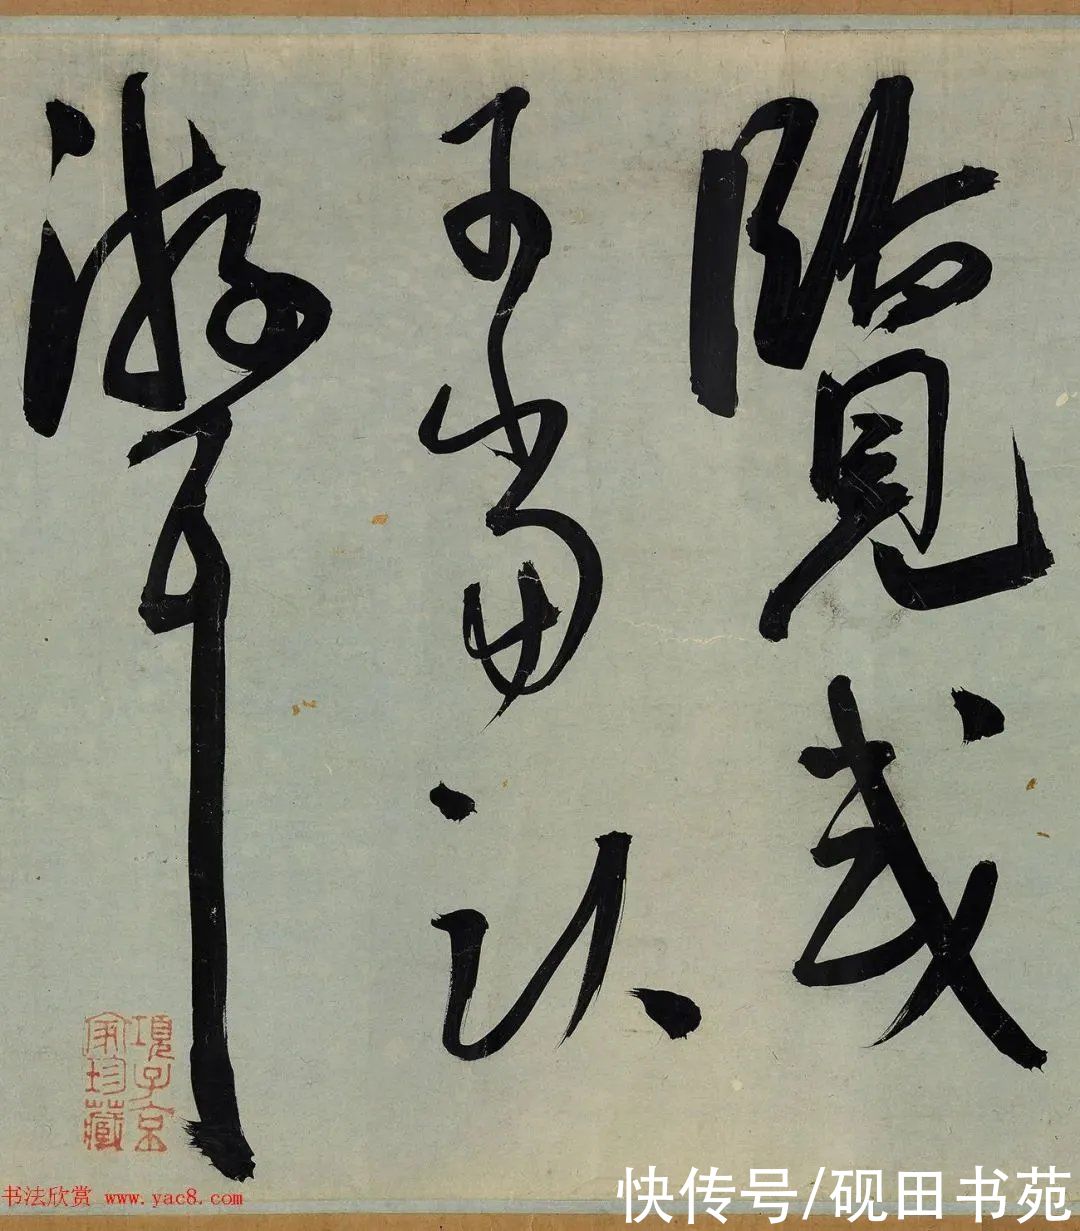 覽或
可當臥
游耳
項子京
家珍藏
书法欣赏 www.yac8.com
快传号/砚田书苑